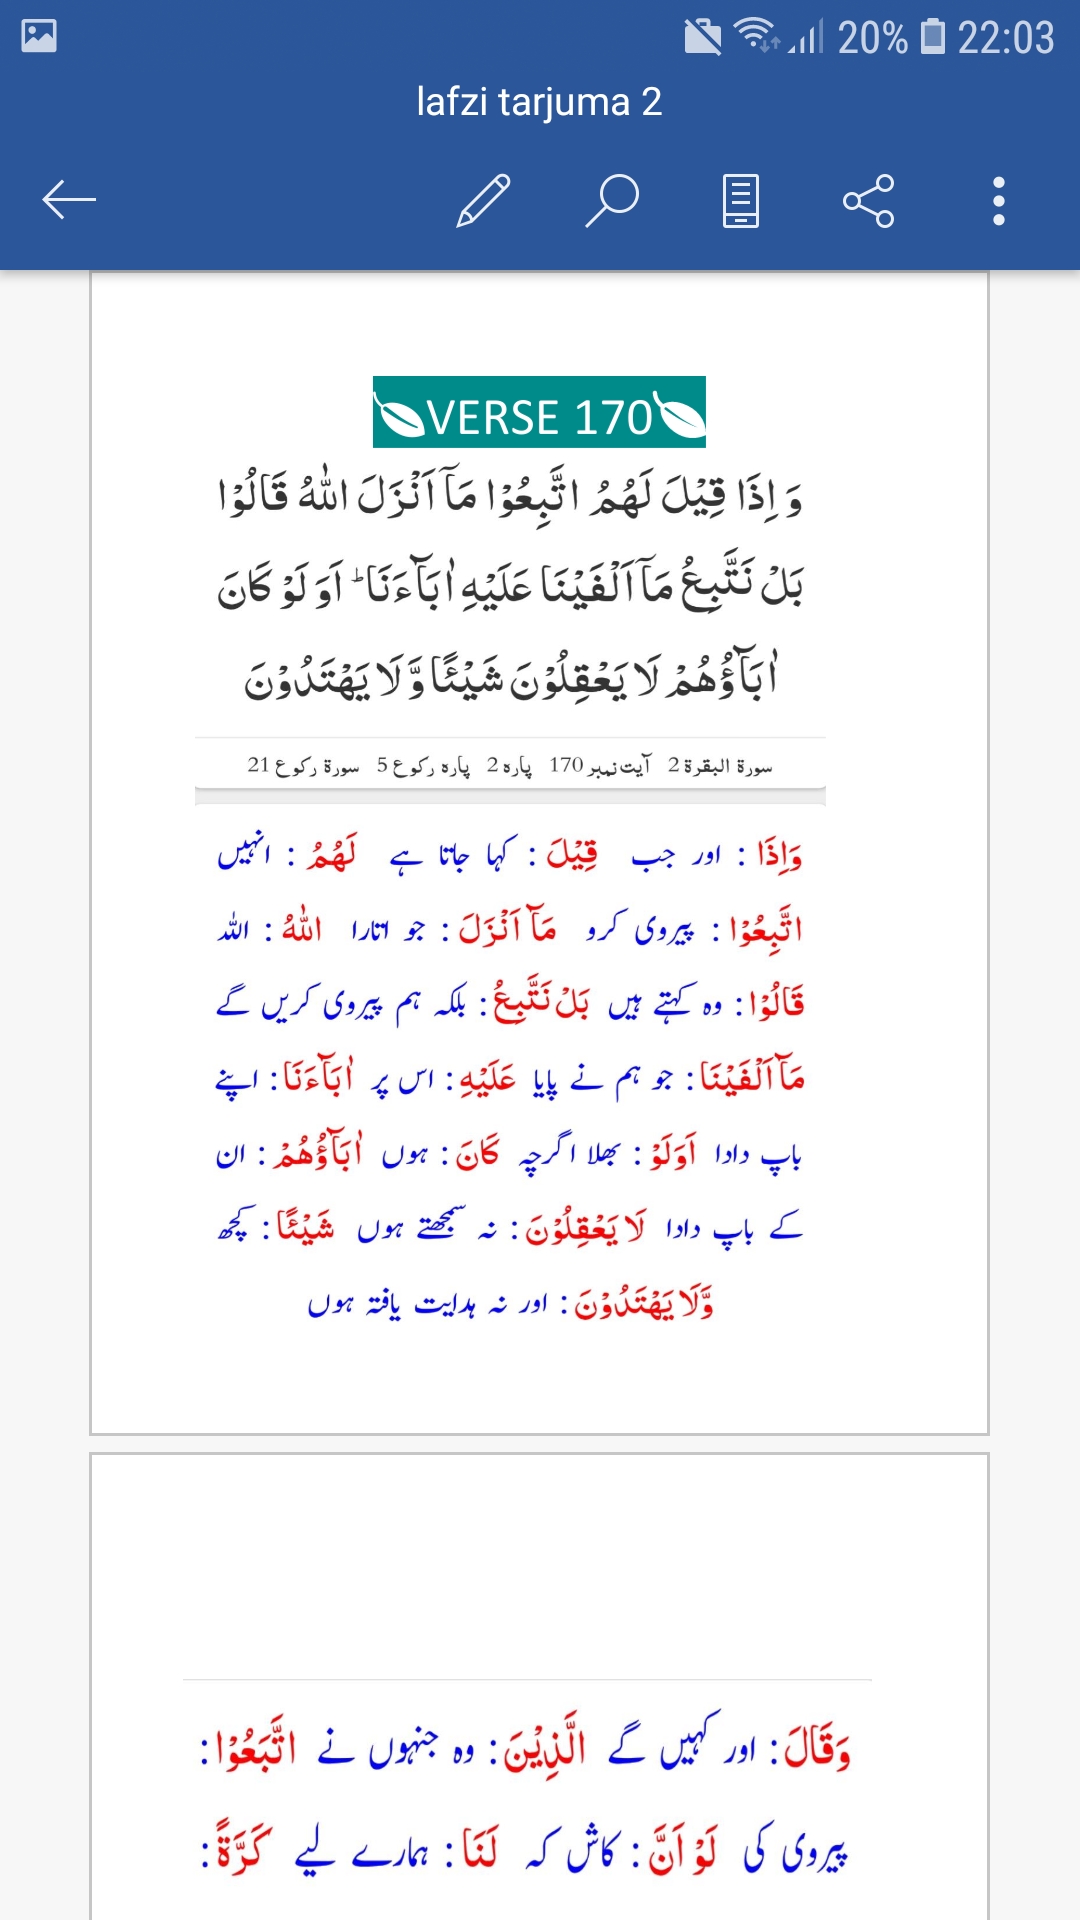 20% 22:03
lafzi tarjuma 2
VERSE 170
وَ اِذَا قِیْلَ لَهُمُ اتَّبِعُوْا مَاۤ اَنْزَلَ اللّٰهُ قَالُوْا
بَلْ نَتَّبِعُ مَاۤ اَلْفَیْنَا عَلَیْهِ اٰبَآءَنَا ؕ اَوَ لَوْ كَانَ
اٰبَآؤُهُمْ لَا یَعْقِلُوْنَ شَیْـًٔا وَّ لَا یَهْتَدُوْنَ
سورۃ البقرۃ 2 آیت نمبر 170 پارہ 2 پارہ رکوع 5 سورۃ رکوع 21
وَاِذَا : اور جب قِیْلَ : کہا جاتا ہے لَهُمُ : انہیں
اتَّبِعُوْا : پیروی کرو مَاۤ اَنْزَلَ : جو اتارا اللّٰهُ : اللہ
قَالُوْا : وہ کہتے ہیں بَلْ نَتَّبِعُ : بلکہ ہم پیروی کریں گے
مَاۤ اَلْفَیْنَا : جو ہم نے پایا عَلَیْهِ : اس پر اٰبَآءَنَا : اپنے
باپ دادا اَوَلَوْ : بھلا اگرچہ كَانَ : ہوں اٰبَآؤُهُمْ : ان
کے باپ دادا لَا یَعْقِلُوْنَ : نہ سمجھتے ہوں شَیْـًٔا : کچھ
وَّلَا یَهْتَدُوْنَ : اور نہ ہدایت یافتہ ہوں
وَقَالَ : اور کہیں گے الَّذِیْنَ : وہ جنہوں نے اتَّبَعُوْا :
پیروی کی لَوْ اَنَّ : کاش کہ لَنَا : ہمارے لیے كَرَّةً :